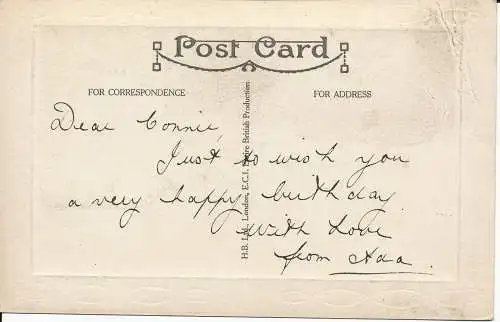 Post Card
FOR CORRESPONDENCE
FOR ADDRESS
Dear Connie,
Just to wish you
a very happy birthday
with Love
from Ada.
H.B. Ltd., London, E.C.1. Entire British Production